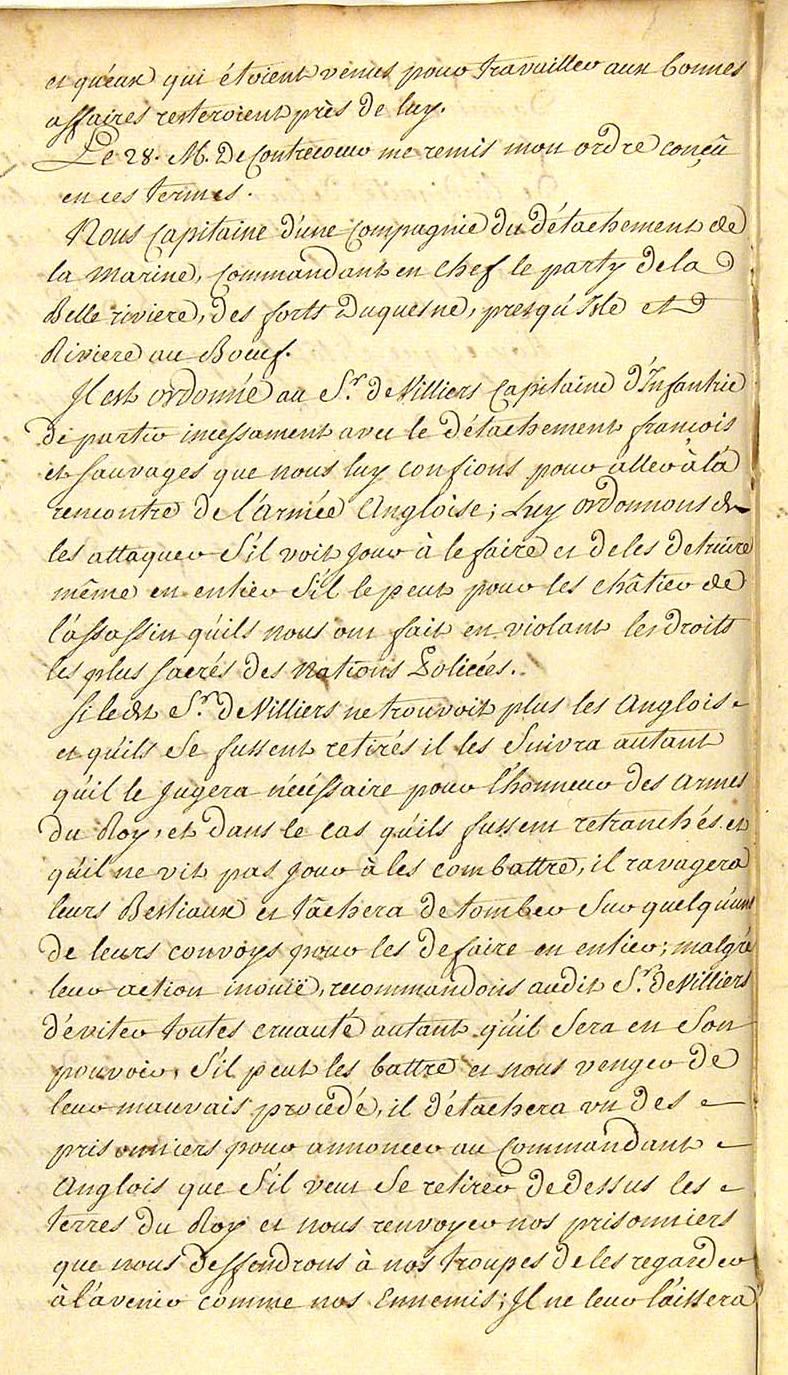 et qu'eux qui étoient venus pour travailler aux bonnes
affaires resteroient près de luy.
Le 28. M. De Contrecoeur me remis mon ordre conçû
en ces termes.
Nous Capitaine d'une Compagnie du détachement de
la Marine, Commandant en Chef le party de la
Belle riviere, des forts Duquesne, presqu'Isle et
Riviere au Boeuf.
Il est ordonné au Sr. de Villiers Capitaine d'Infantrie
de partir incessament avec le détachement francois
et sauvages que nous luy confions pour aller à la
rencontre de l'Armée Angloise; Luy ordonnons de
les attaquer s'il voit jour à le faire et de les detruire
même en entier s'il le peut pour les châtier de
l'assassin qu'ils nous ont fait en violant les droits
les plus sacrés des Nations Policées.
Si ledit Sr. de Villiers ne trouvoit plus les Anglois
et qu'ils se fussent retirés il les suivra autant
qu'il le jugera nécéssaire pour l'honneur des Armes
du Roy, et dans le cas qu'ils fussent retranchés et
qu'il ne vit pas jour à les combattre, il ravagera
leurs Bestiaux et tâchera de tomber sur quelqu'uns
de leurs convoys pour les defaire en entier; malgré
leur action inouïe, recommandons audit Sr. de Villiers
d'eviter toutes cruauté autant qu'il sera en son
pouvoir, s'il peut les battre et nous venger de
leur mauvais procédé, il détachera un des
prisonniers pour annoncer au Commandant
Anglois que s'il veut se retirer de dessus les
terres du Roy et nous renvoyer nos prisonniers
que nous deffendrons à nos troupes de les regarder
à l'avenir comme nos Ennemis; Il ne leur laissera